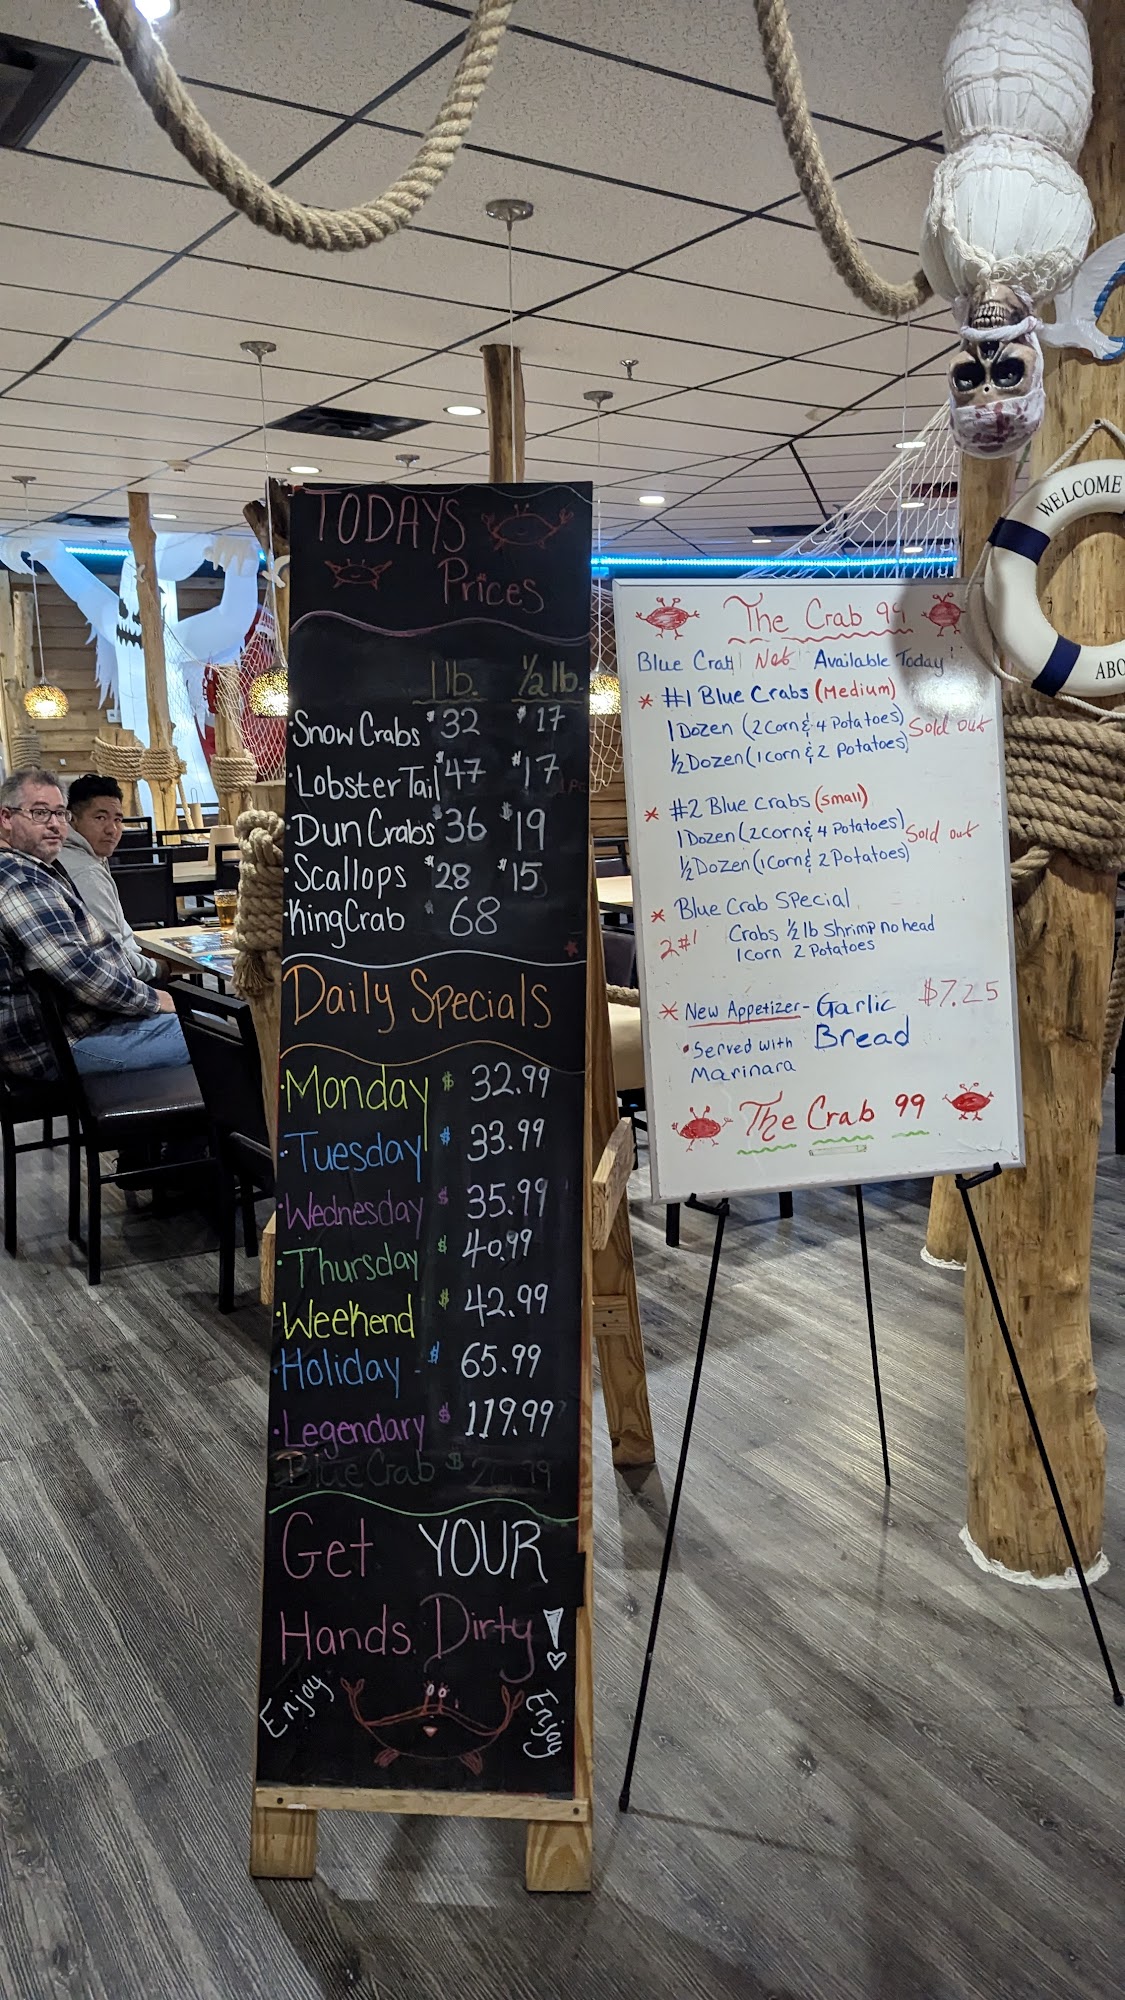 TODAYS
Prices
1lb. 1/2 lb.
·Snow Crabs $32 $17
·Lobster Tail $47 $17 1pc
·Dun Crabs $36 $19
·Scallops $28 $15
·King Crab $ 68
Daily Specials
·Monday $ 32.99
·Tuesday $ 33.99
·Wednesday $ 35.99
·Thursday $ 40.99
·Weekend $ 42.99
·Holiday - $ 65.99
·Legendary $ 119.99
Blue Crab $
Get YOUR
Hands Dirty!
Enjoy
Enjoy
The Crab 99
Blue Crab Not Available Today
* #1 Blue Crabs (Medium)
1 Dozen (2 Corn & 4 Potatoes)
Sold out
1/2 Dozen (1 Corn & 2 Potatoes)
* #2 Blue Crabs (small)
1 Dozen (2 Corn & 4 Potatoes)
Sold out
1/2 Dozen (1 Corn & 2 Potatoes)
* Blue Crab Special
2 #1 Crabs 1/2 lb Shrimp no head
1 Corn 2 Potatoes
* New Appetizer - Garlic $7.25
Bread
• Served with
Marinara
The Crab 99
WELCOME
ABO